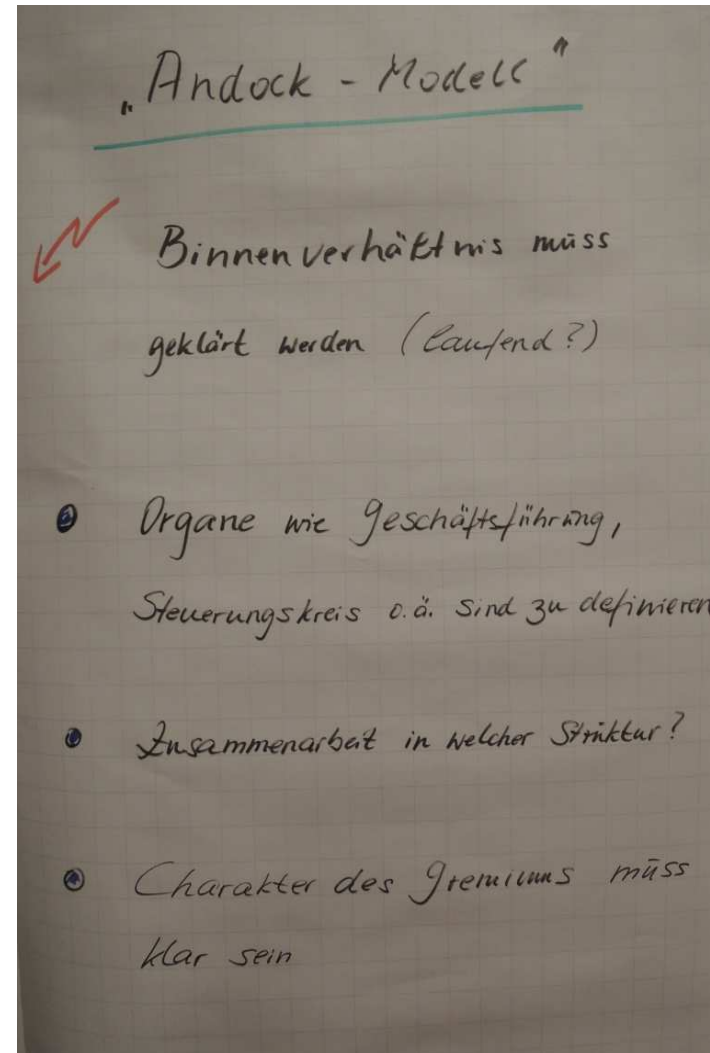 „Andock - Modell"
Binnenverhältnis muss
geklärt werden (laufend?)
Organe wie Geschäftsführung,
Steuerungskreis o.ä. sind zu definieren
Zusammenarbeit in welcher Struktur?
Charakter des Gremiums muss
klar sein